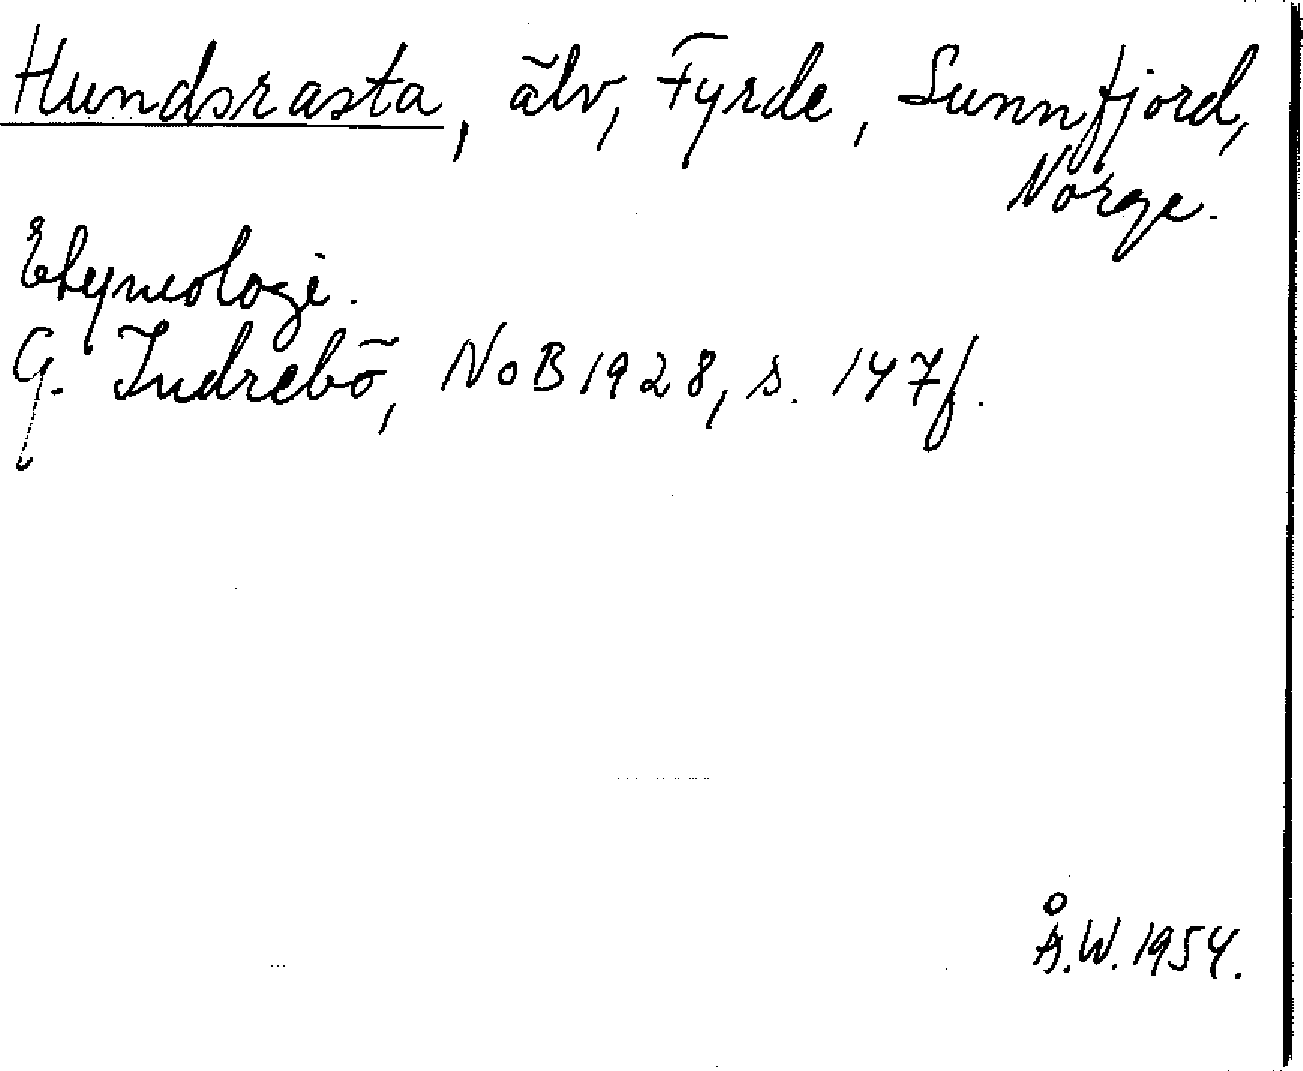 Hundsrasta, älv, Fyrde, Sunnfjord,
Norge.
Etymologi.
G. Indrebö, NoB 1928, s. 147f.
Å.W. 1954.